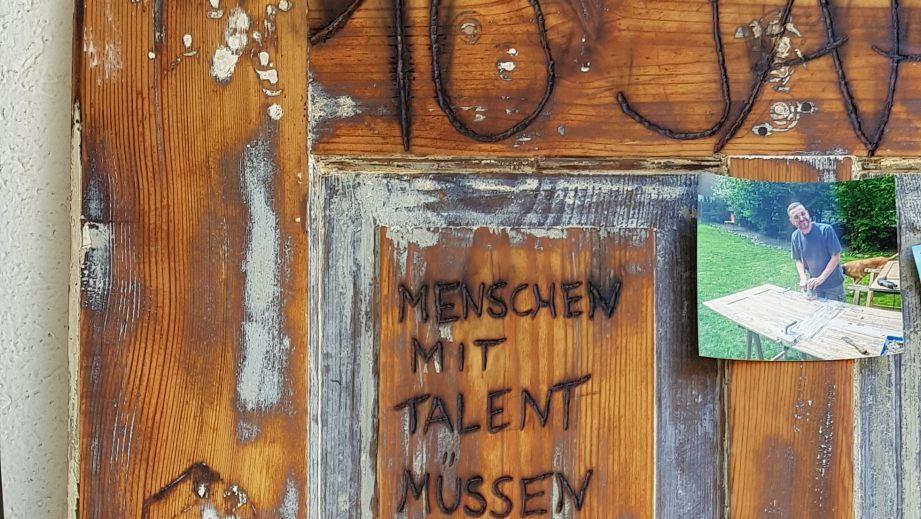 10 JAH
MENSCHEN
MIT
TALENT
MÜSSEN